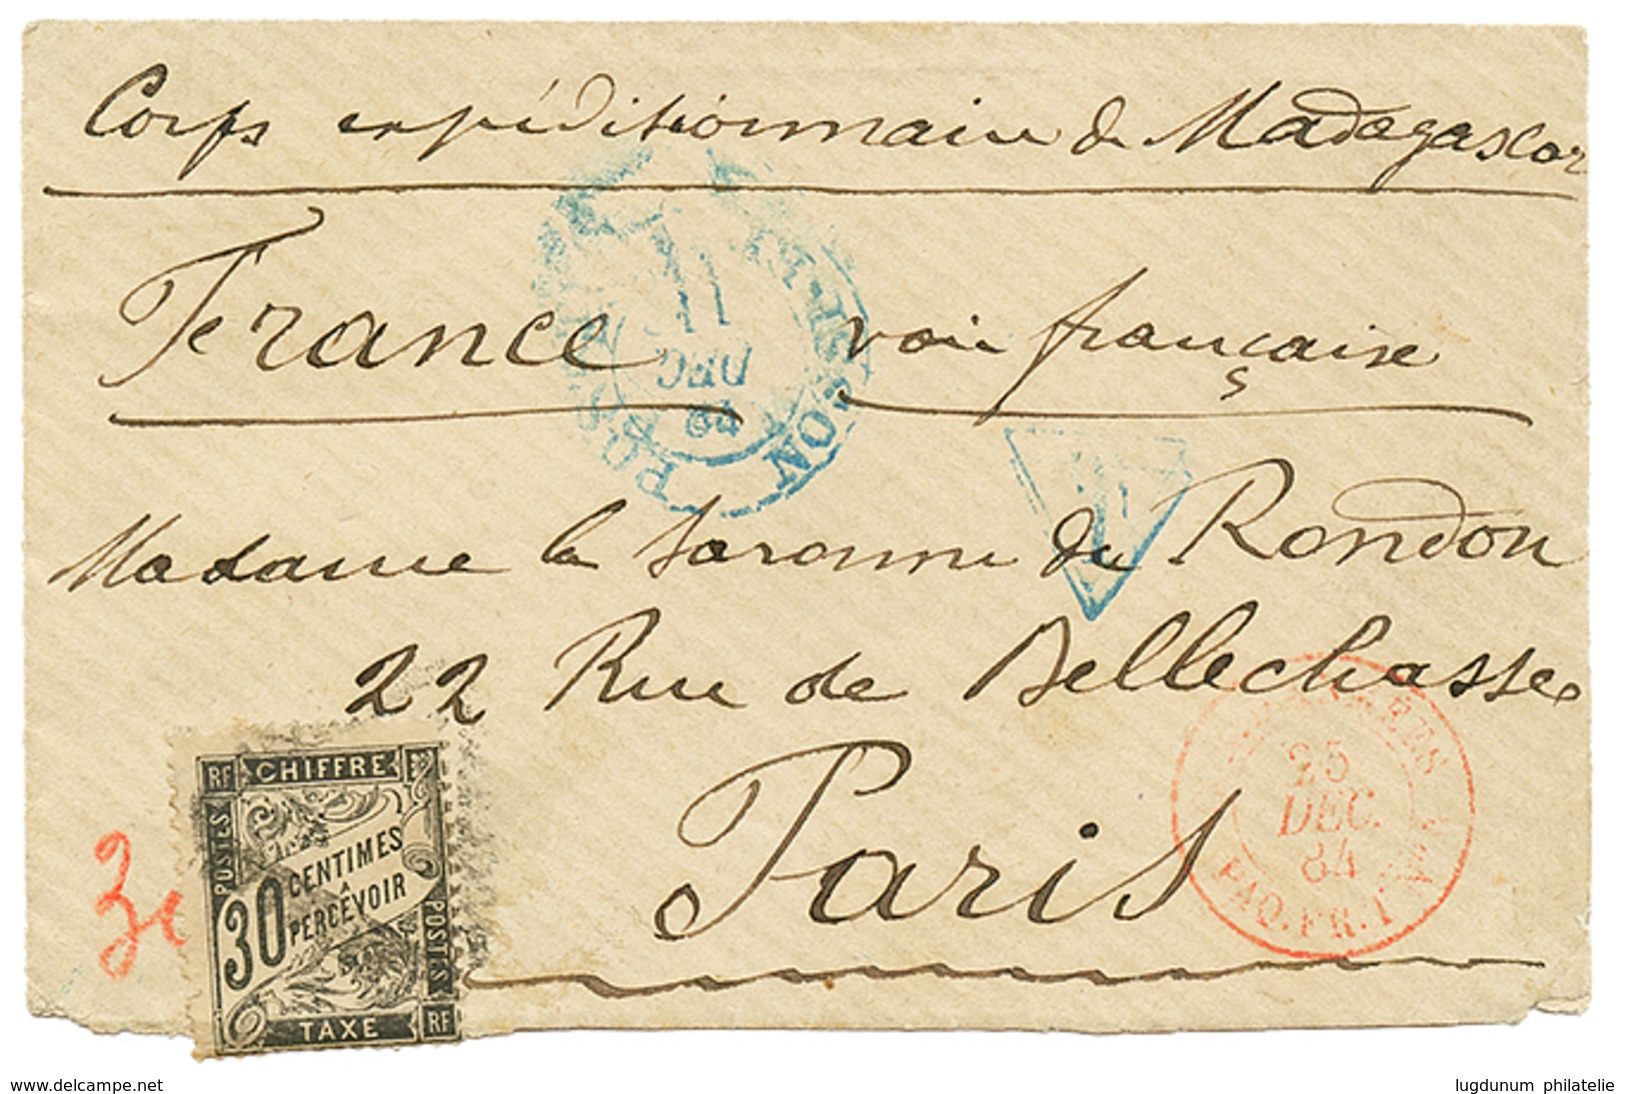 Corps expéditionnaire de Madagascar
France voie française
DEC
Madame la Baronne de Rondon
22 Rue de Bellechasse
Paris
T
25
DEC.
84
PAQ. FR. T
RF CHIFFRE
POSTES
30 CENTIMES
À
PERCEVOIR
POSTES
TAXE RF
30
www.delcampe.net
lugdunum philatelie